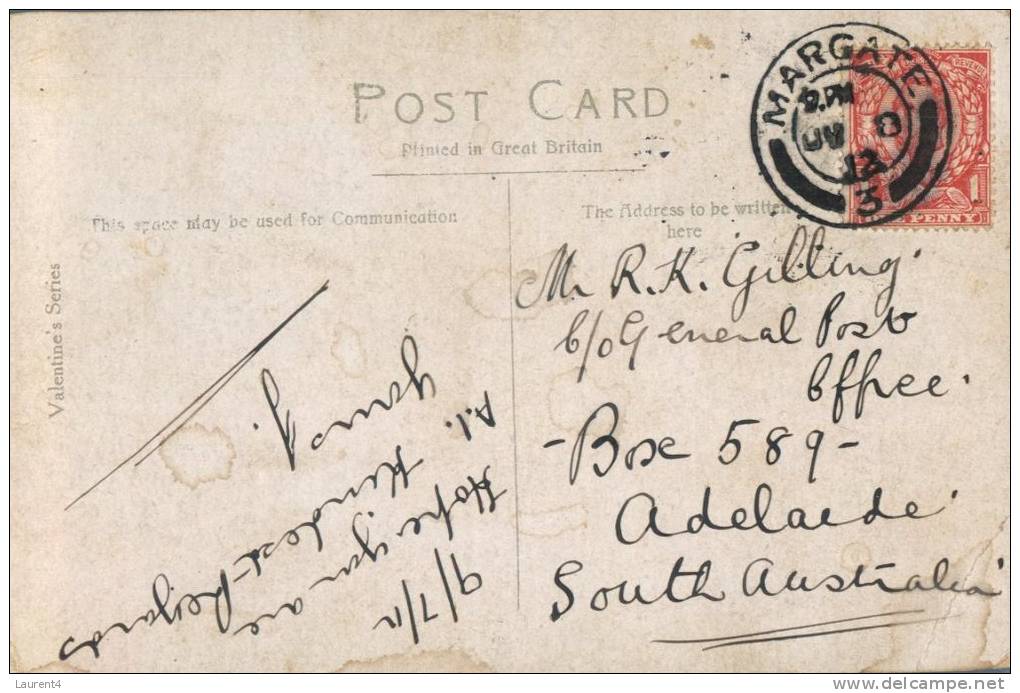 POST CARD
Printed in Great Britain
This space may be used for Communication
The Address to be written
here
Valentine's Series
MARGATE
PM
12
3
REVENUE
1
PENNY
9/7/12
Hope you are
A.1.
Kindest Regards
Mr R. K. Gilling
c/o General Post
Office.
- Box 589 -
Adelaide
South Australia
Laurent4
www.delcampe.net